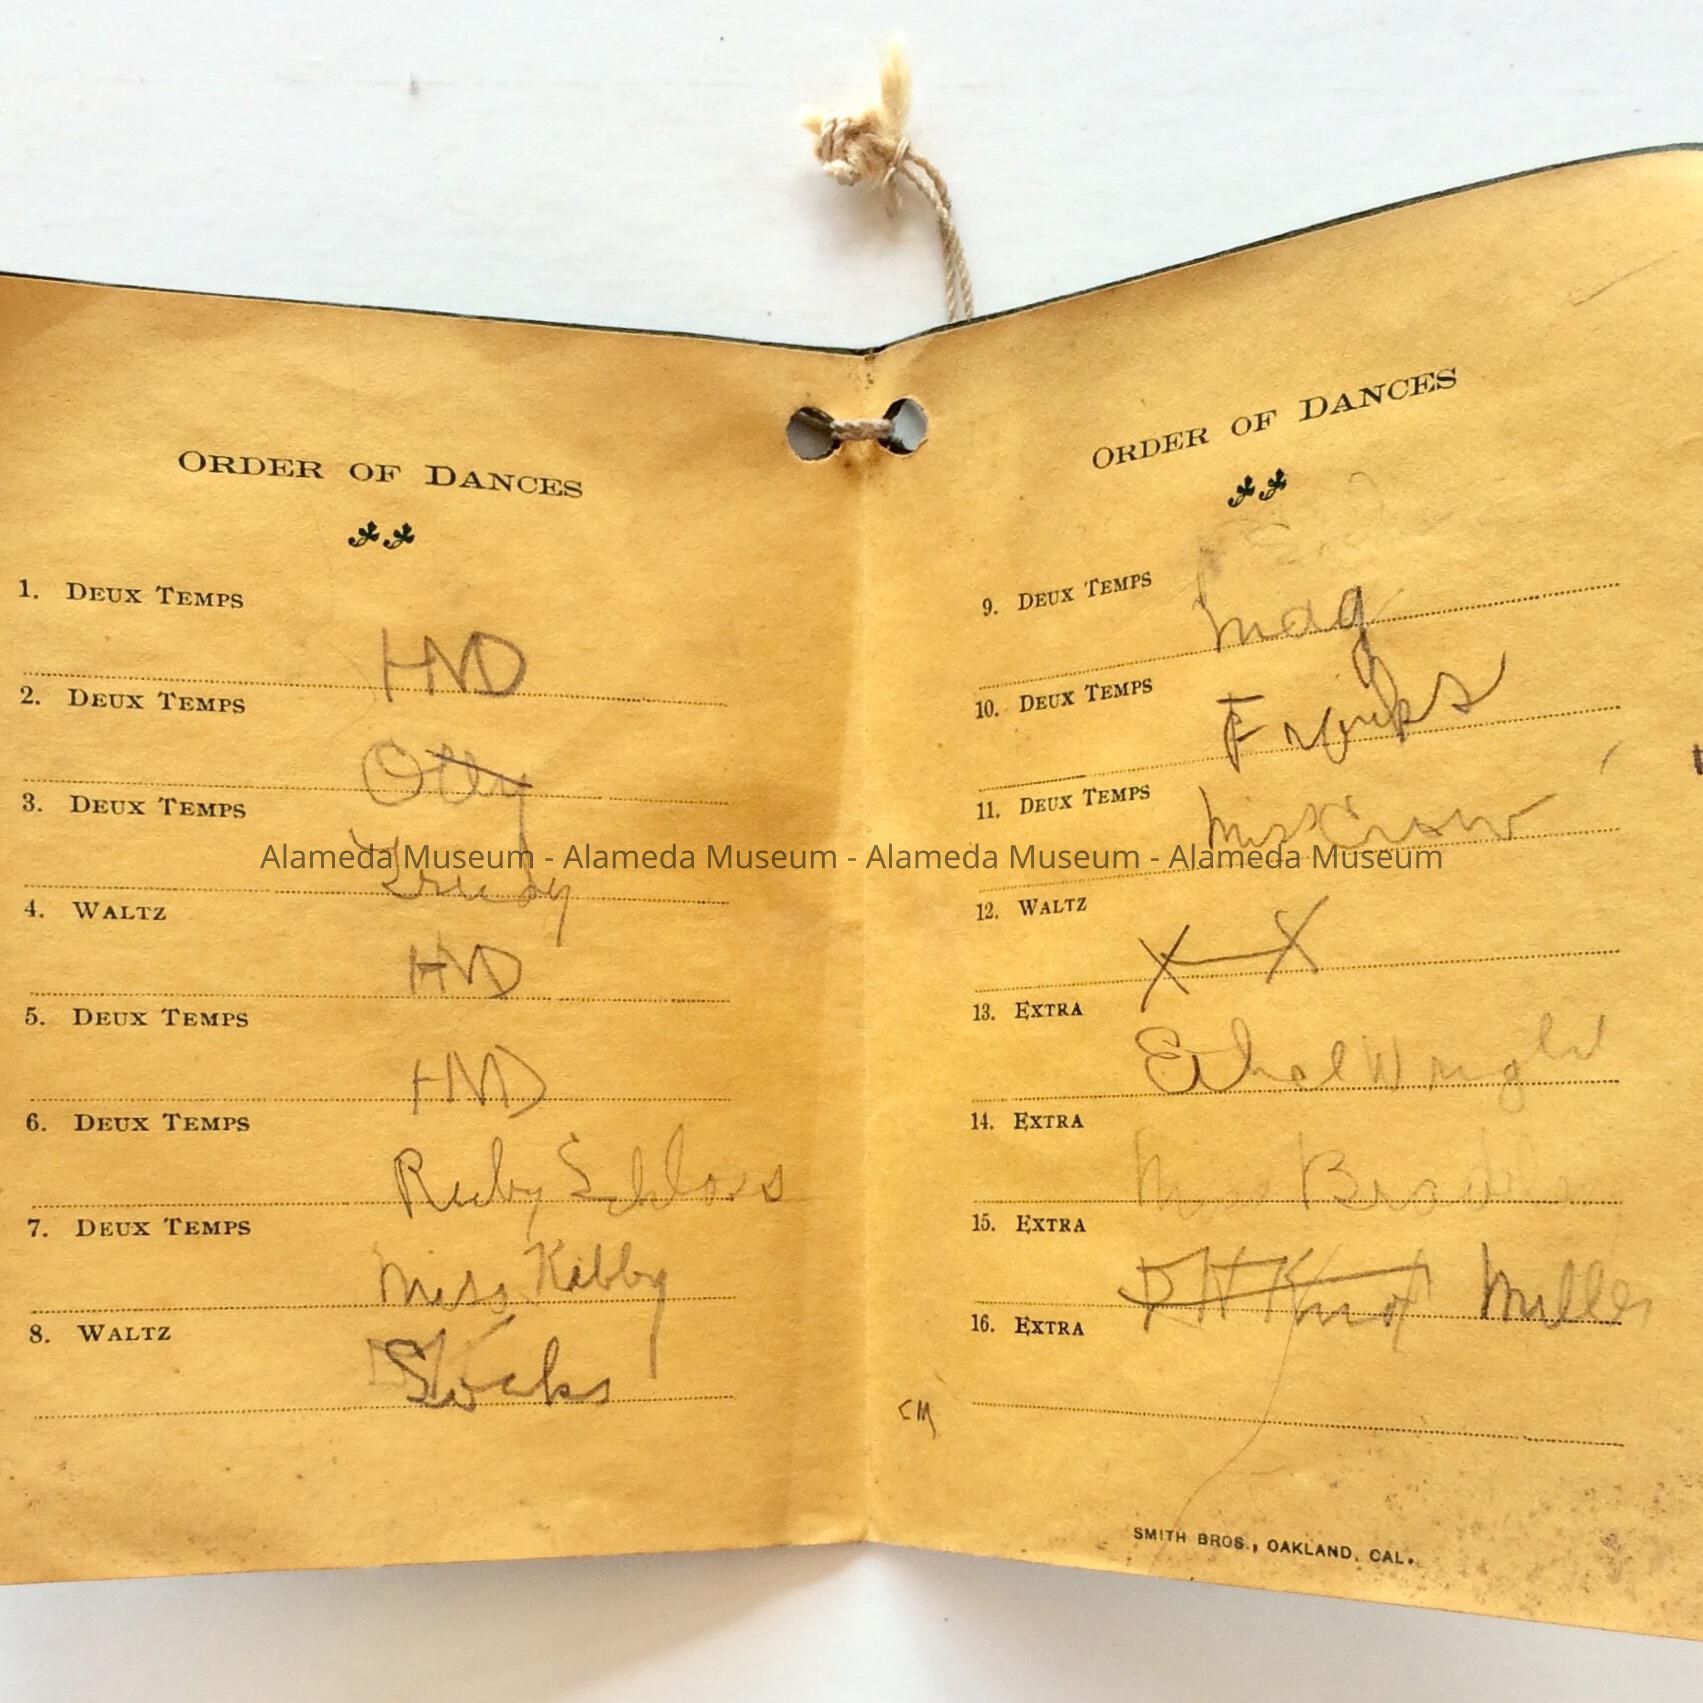 ORDER OF DANCES
1. DEUX TEMPS
HMD
2. DEUX TEMPS
Olly
3. DEUX TEMPS
Trudy
4. WALTZ
HMD
5. DEUX TEMPS
HMD
6. DEUX TEMPS
Ruby Schloss
7. DEUX TEMPS
Miss Kibby
8. WALTZ
Stocks
ORDER OF DANCES
9. DEUX TEMPS
Mag
10. DEUX TEMPS
Franks
11. DEUX TEMPS
Miss Crow
12. WALTZ
X—X
13. EXTRA
Ethel Wright
14. EXTRA
Miss
15. EXTRA
Miller
16. EXTRA
CM
SMITH BROS., OAKLAND, CAL.
Alameda Museum - Alameda Museum - Alameda Museum - Alameda Museum